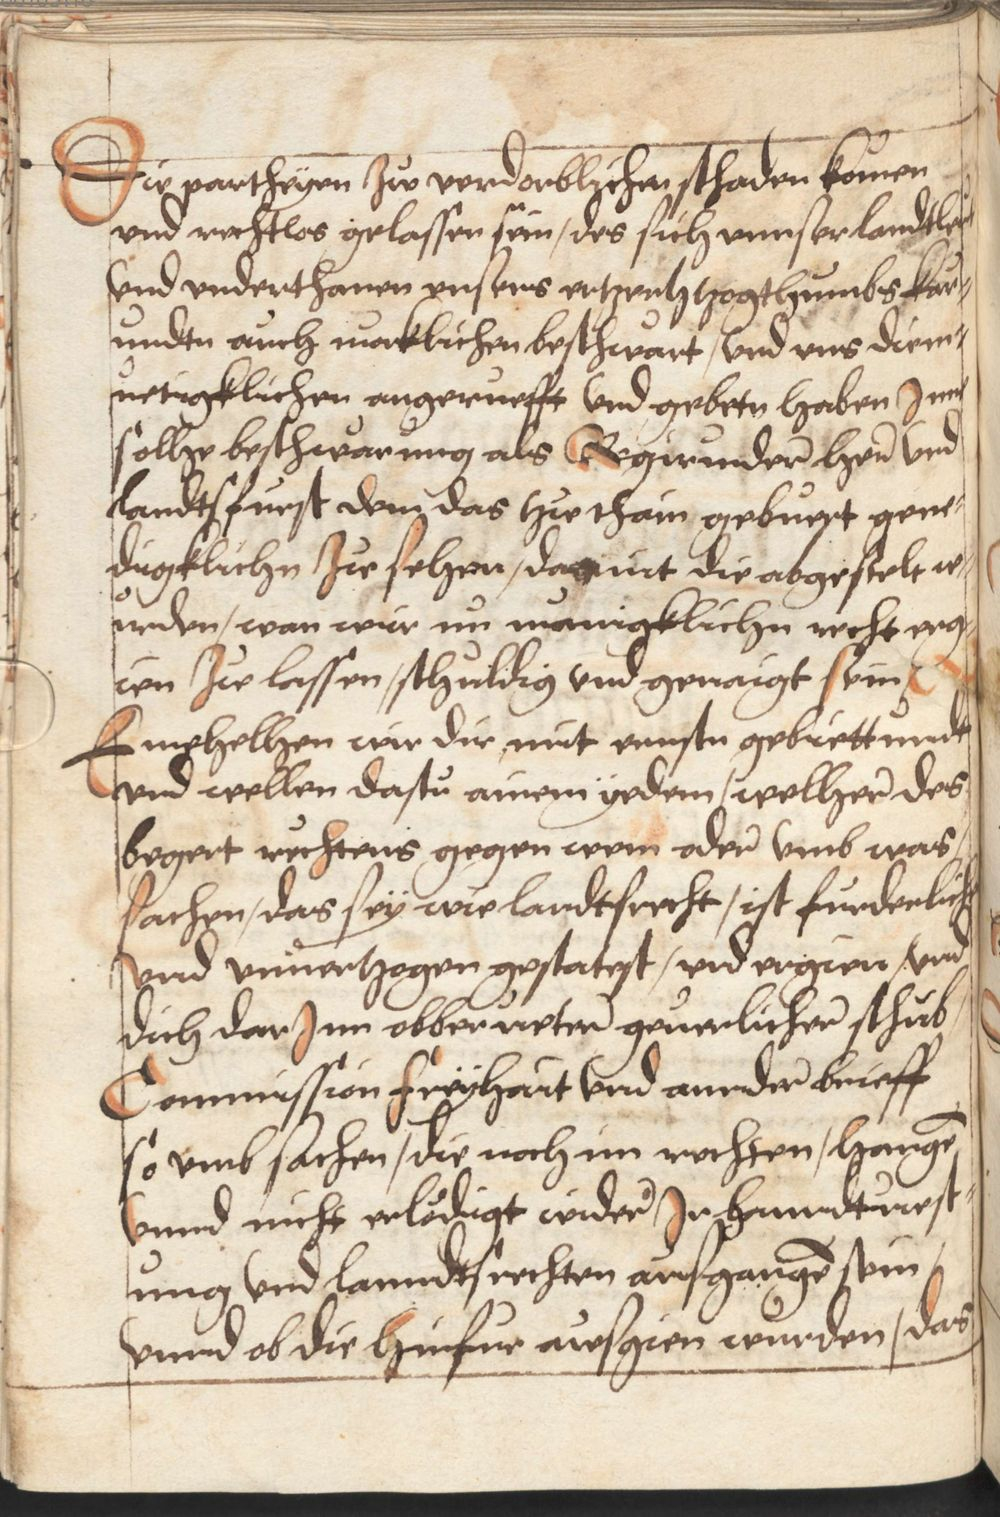 Die partheyen Zw verdorblichen schaden komen
vnd rechtlos gelassen sein / des sich vnnser landtleut
Vnd vnderthanen vnsers ertzenhhogthumbs kar=
nndtn auch mercklichen beschwart / Vnd vns diem=
uetigklichen angeruefft Vnd gebetn haben Inn
solhe beschwarung als Regirunder her Vnd
landtsfurst dem das Hie thain gebuert gene=
digklichn Zw sehen / damit die abgestelt w=
urden / wan wir nu manigklichn recht erg=
ien Zw lassen / schuldig vnd genaigt sein /
Emphelhen wir dir mit ernstn
vnd wellen dastu ainem yedem / welher des
begert rechtens gegen wem oder Vmb was /
sachen / das sey wie landtsrecht / ist furderlich
Vnd vnuertzogen gestatest / vnd ergien / Vnd
dich dar Inn obberurter geuerlicher schub /
Comission freyhait Vnd annder brieff
so vmb sachen / die noch im rechten / hangen
Vnnd nicht erledigt wider Ir hanndtuest=
ung Vnd lanndtsrechten ausgangen sein /
Vnnd ob die hinfur ausgien wurden / das